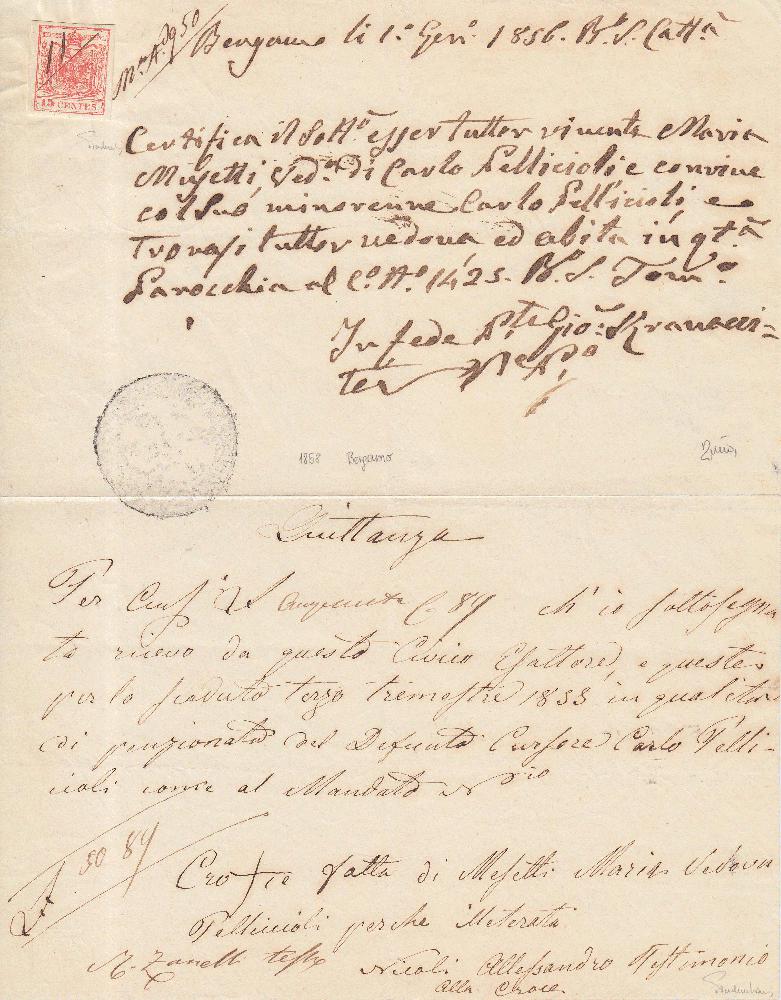 11
15 CENTES
50
Bergamo li 1° Gen° 1856. B° S. Catt.a
Certifica il Sott° esser tuttor vivente Maria
Mussetti, Ved.a di Carlo Pelliccioli e convive
col suo minorenne Carlo Pelliccioli, e
trovasi tuttor vedova ed abita in q.ta
Parocchia al C.° N.° 1425. B.° S. Tom.°
In fede P.te Gio:
1858 Bergamo
Quittanza
Per 50 84 ch'io sottosegna
ta ricevo da questo Civico Esattore, e queste
per lo scaduto terzo trimestre 1855 in qualità
di penzionata del Defunto Cursore Carlo Pelli-
cioli come al Mandato
50 84
Cro+ce fatta di Mesetti Maria Vedova
Pelliccioli perche illeterata
Zanetti testo Nicoli Allessandro Testimonio
alla Croce